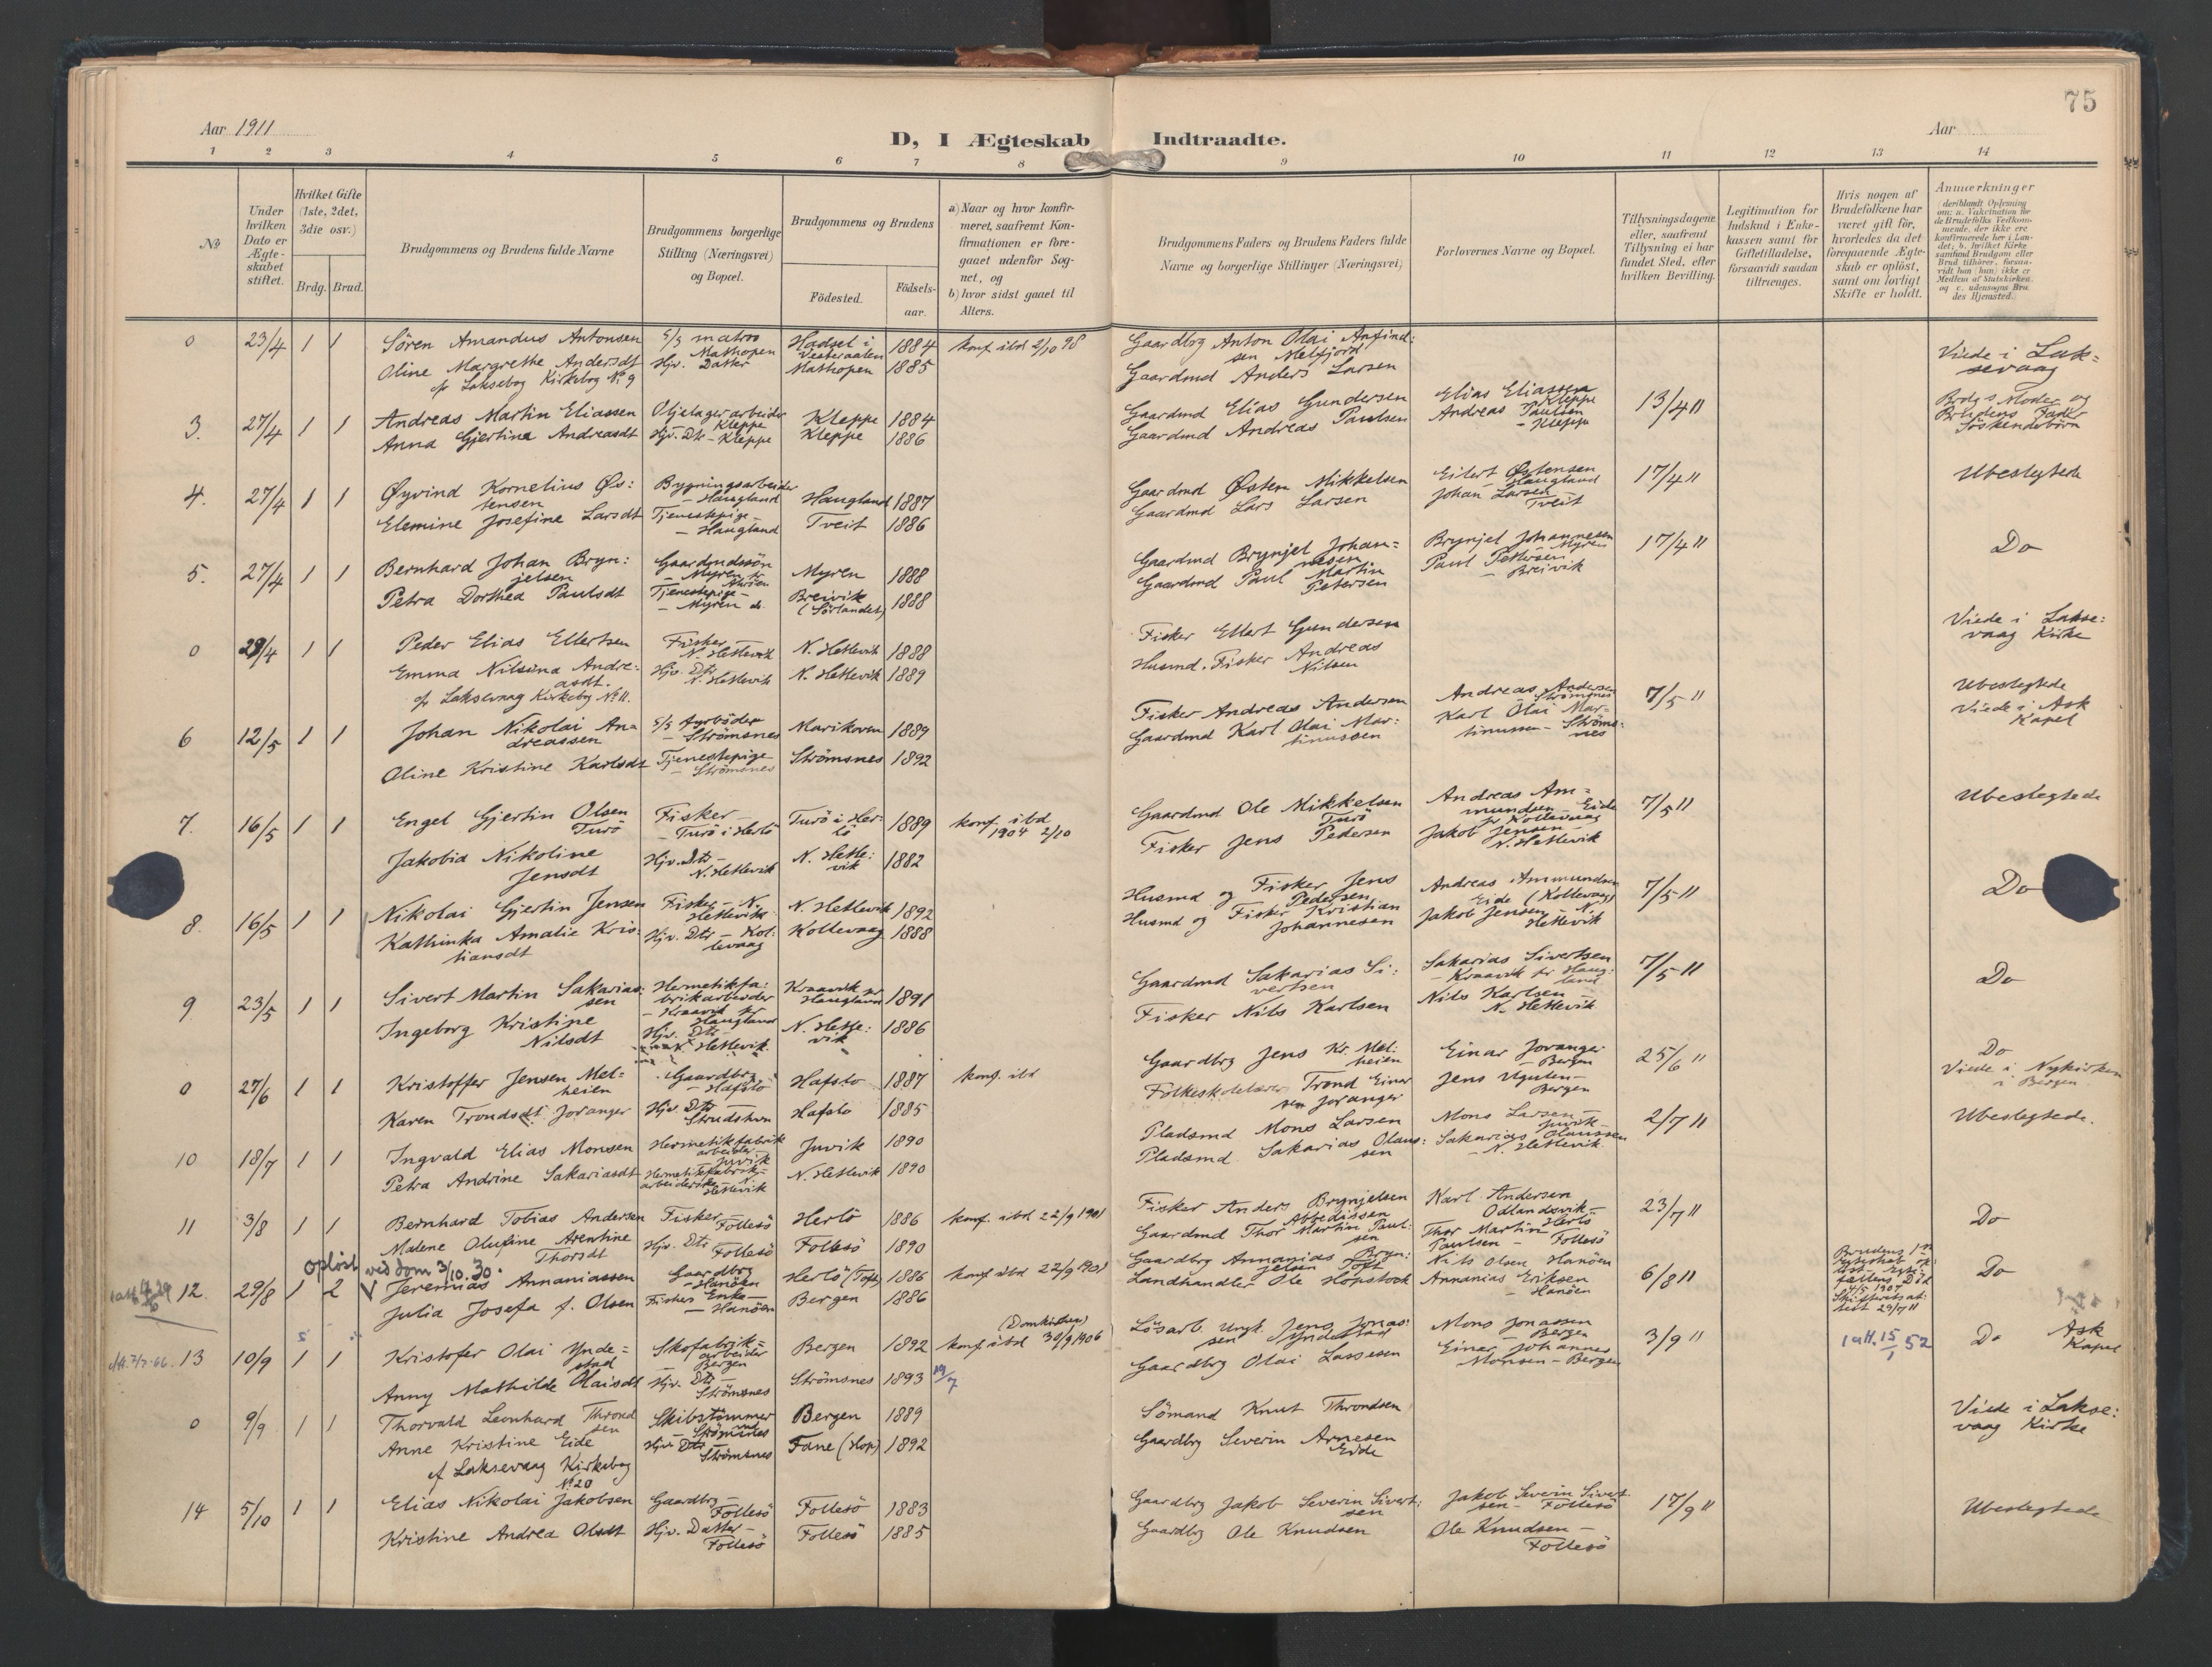 75
Aar 1911
D, I Ægteskab Indtraadte.
Aar
1 2 3 4 5 6 7 8 9 10 11 12 13 14
No
Under hvilken Dato er Ægteskabet stiftet.
Hvilket Gifte (1ste, 2det, 3die osv.)
Brdg. Brud.
Brudgommens og Brudens fulde Navne
Brudgommens borgerlige Stilling (Næringsvei) og Bopæl.
Brudgommens og Brudens
Födested.
Födselsaar.
a) Naar og hvor konfirmeret, saafremt Konfirmationen er foregaaet udenfor Sognet, og
b) hvor sidst gaaet til Alters.
Brudgommens Faders og Brudens Faders fulde Navne og borgerlige Stillinger (Næringsvei)
Forlovernes Navne og Bopæl.
Tillysningsdagene eller, saafremt Tillysning ei har fundet Sted, efter hvilken Bevilling.
Legitimation for Indskud i Enkekassen samt for Giftetilladelse, forsaavidt saadan tiltrænges.
Hvis nogen af Brudefolkene har været gift för, hvorledes da det foregaaende Ægteskab er oplöst, samt om lovligt Skifte er holdt.
Anmærkninger (deriblandt Oplysning om: a. Vakcination for de Brudefolks Vedkommende, der ikke ere konfirmerede her i Landet; b. hvilket Kirkesamfund Brudgom eller Brud tilhörer, forsaavidt han (hun) ikke er Medlem af Statskirken, og c. udensogns Brudes Hjemsted.
0 23/4 1 1 Sören Amandus Antonsen s/s matros Mathopen Hadsel i Vesteraalen 1884 konf. ibd 2/10 98 Gaardbrg Anton Olai Anfindsen Melfjord Viede i Laksevaag
Oline Margrethe Andersdt Hjv. Datter Mathopen 1885 Gaardmd Anders Larsen
cf Laksevog Kirkebog No 9
3. 27/4 1 1 Andreas Martin Eliassen Oljelagerarbeider Kleppe Kleppe 1884 Gaardmd Elias Gundersen Elias Eliassen Kleppe 13/4 11 Brdgs Moder og Brudens Fader Söskendebörn
Anna Gjertine Andreasdt Hjv. Dtr - Kleppe Kleppe 1886 Gaardmd Andreas Paulsen Andreas Paulsen - Kleppe
4. 27/4 1 1 Øyvind Kornelius Øs: tensen Bygningsarbeider - Haugland Haugland 1887 Gaardmd Østen Mikkelsen Eilert Østensen Haugland 17/4 11 Ubeslegtede
Elemine Josefine Larsdt Tjenestepige - Haugland Tveit 1886 Gaardmd Lars Larsen Johan Larsen Tveit
5. 27/4 1 1 Bernhard Johan Bryn: jelsen Gaardmdssön - Myren Myren 1888 Gaardmd Brynjel Johan= nesen Brynjel Johannesen - Myren 17/4 11 Do
Petra Dorthea Paulsdt Tjenestepige - Myren do. Breivik (Sörlandet) 1888 Gaardmd Paul Martin Petersen Paul Petersen - Breivik
0 28/4 1 1 Peder Elias Ellertsen Fisker - N. Hetlevik N. Hetlevik 1888 Fisker Ellert Gundersen Viede i Lakse: vaag Kirke
Emma Nilsina Andre: asdt. Hjv. Dtr N. Hetlevik N. Hetlevik 1889 Husmd. Fisker Andreas Nilsen
cf Laksevaag Kirkebog No 11.
6 12/5 1 1 Johan Nikolai An= dreassen s/s fyrböder - Strömsnes Marikoven 1889 Fisker Andreas Andersen Andreas Andersen Strömsnes 7/5 11 Ubeslegtede Viede i Ask Kapel
Oline Kristine Karlsdt Tjenestepige - Strömsnes Strömsnes 1892 Gaardmd Karl Olai Mar: tinussen Karl Olai Mar= tinussen - Ströms: nes
7. 16/5 1 1 Engel Gjertin Olsen Turö Fisker - Turö i Herlö Turö i Her= lö 1889 konf. ibd 1904 2/10 Gaardmd Ole Mikkelsen Turö Andreas Am= mundsen - Eide pr Kollevaag 7/5 11 Ubeslegtede
Jakobia Nikoline Jensdt Hjv. Dtr - N. Hetlevik N. Hetle: vik 1882 Fisker Jens Pedersen Jakob Jensen - N. Hetlevik
8. 16/5 1 1 Nikolai Gjertin Jensen Fisker - N. Hetlevik N. Hetlevik 1892 Husmd og Fisker Jens Pedersen Andreas Ammundsen Eide (Kollevaag) 7/5 11 Do
Kathinka Amalie Kris: tiansdt Hjv. Dtr - Kol: levaag Kollevaag 1888 Husmd og Fisker Kristian Johannesen Jakob Jensen - N. Hetlevik
9 23/5 1 1 Sivert Martin Sakarias: sen Hermetikfa: brikarbeider - Kraavik pr Haugland Kraavik pr Haugland 1891 Gaardmd Sakarias Si: vertsen Sakarias Sivertsen - Kraavik pr Haug: land 7/5 11 Do
Ingeborg Kristine Nilsdt Hjv. Dtr - N. Hetlevik N. Hetle: vik 1886 Fisker Nils Karlsen Nils Karlsen - N. Hetlevik
0 27/6 1 1 Kristoffer Jensen Mel= heien Gaardbrg - Hafslo Hafslo 1887 konf. ibd Gaardbrg Jens Kr. Mel: heien Einar Joranger - Bergen 25/6 11 Do Viede i Nykirken i Bergen
Karen Trondsdt Joranger Hjv. Dtr - Strudshavn Hafslo 1885 Folkeskolelærer Trond Einar sen Joranger Jens Bergen
10 18/7 1 1 Ingvald Elias Monsen Hermetikfabrik arbeider - Juvik Juvik 1890 Pladsmd Mons Larsen Mons Larsen - Juvik 2/7 11 Ubeslegtede.
Petra Andrine Sakariasdt Hermetikfabrik= arbeiderske - N. Hetlevik N. Hetlevik 1890 Pladsmd. Sakarias Olaus: sen Sakarias Olaussen - N. Hetlevik
11 3/8 1 1 Bernhard Tobias Andersen Fisker - Follesö Herlö 1886 konf. ibd 22/9 1901 Fisker Anders Brynjelsen Abbedissen Karl Andersen Odlandsvik - Herlö 23/7 11 Do
Malene Olufine Arentine Thorsdt Hjv. Dtr Follesö Follesö 1890 Gaardmd Thor Martin Paul: sen Thor Martin Paulsen - Follesö
oplöst ved dom 3/10. 30.
12. 29/8 1 2 V Jeremias Annaniassen Gaardbrg - Hanöen Herlö (Toft) 1886 konf. ibd 22/9 1901 Gaardbrg Annanias Bryn: jelsen Toft Nils Olsen Hanöen 6/8 11 Brudens 1ste Ægteskab op: löst Ægte: fællens Död 4/5 1907 Skifteretsat: test 29/7 11 Do
Julia Josefa f. Olsen Fiskers Enke - Hanöen Bergen 1886 Landhandler Ole Hopstock Annanias Eriksen - Hanöen
13 10/9 1 1 Kristofer Olai Ynde= stad Skofabrik= arbeider Bergen Bergen 1892 konf. ibd (Domkirken) 30/9 1906 Lösarb. Ungk. Jens Jonas: sen Yndestad Mons Jonassen - Bergen 3/9 11 1 att. 15/1 52 Do Ask Kapel
Anny Mathilde Olaisdt Hjv. Dtr - Strömsnes Strömsnes 1893 19/7 Gaardbrg Olai Lassesen Einar Johannes Monsen - Bergen
0 9/9 1 1 Thorvald Leonhard Thrond sen Skibstömmermd Strömsnes Bergen 1889 Sömand Knut Throndsen Viede i Lakse: vaag Kirke
Anne Kristine Eide Hjv. Dtr - Strömsnes Fane (Hop) 1892 Gaardbrg Severin Arnesen Eide
cf Laksevaag Kirkebog No 20
14 5/10 1 1 Elias Nikolai Jakobsen Gaardbrg - Follesö Follesö 1883 Gaardbrg Jakob Severin Sivert: sen Jakob Severin Sivert sen - Follesö 17/9 11 Ubeslegtede
Kristine Andrea Olsdt Hjv. Datter - Follesö Follesö 1885 Gaardbrg Ole Knudsen Ole Knudsen - Follesö